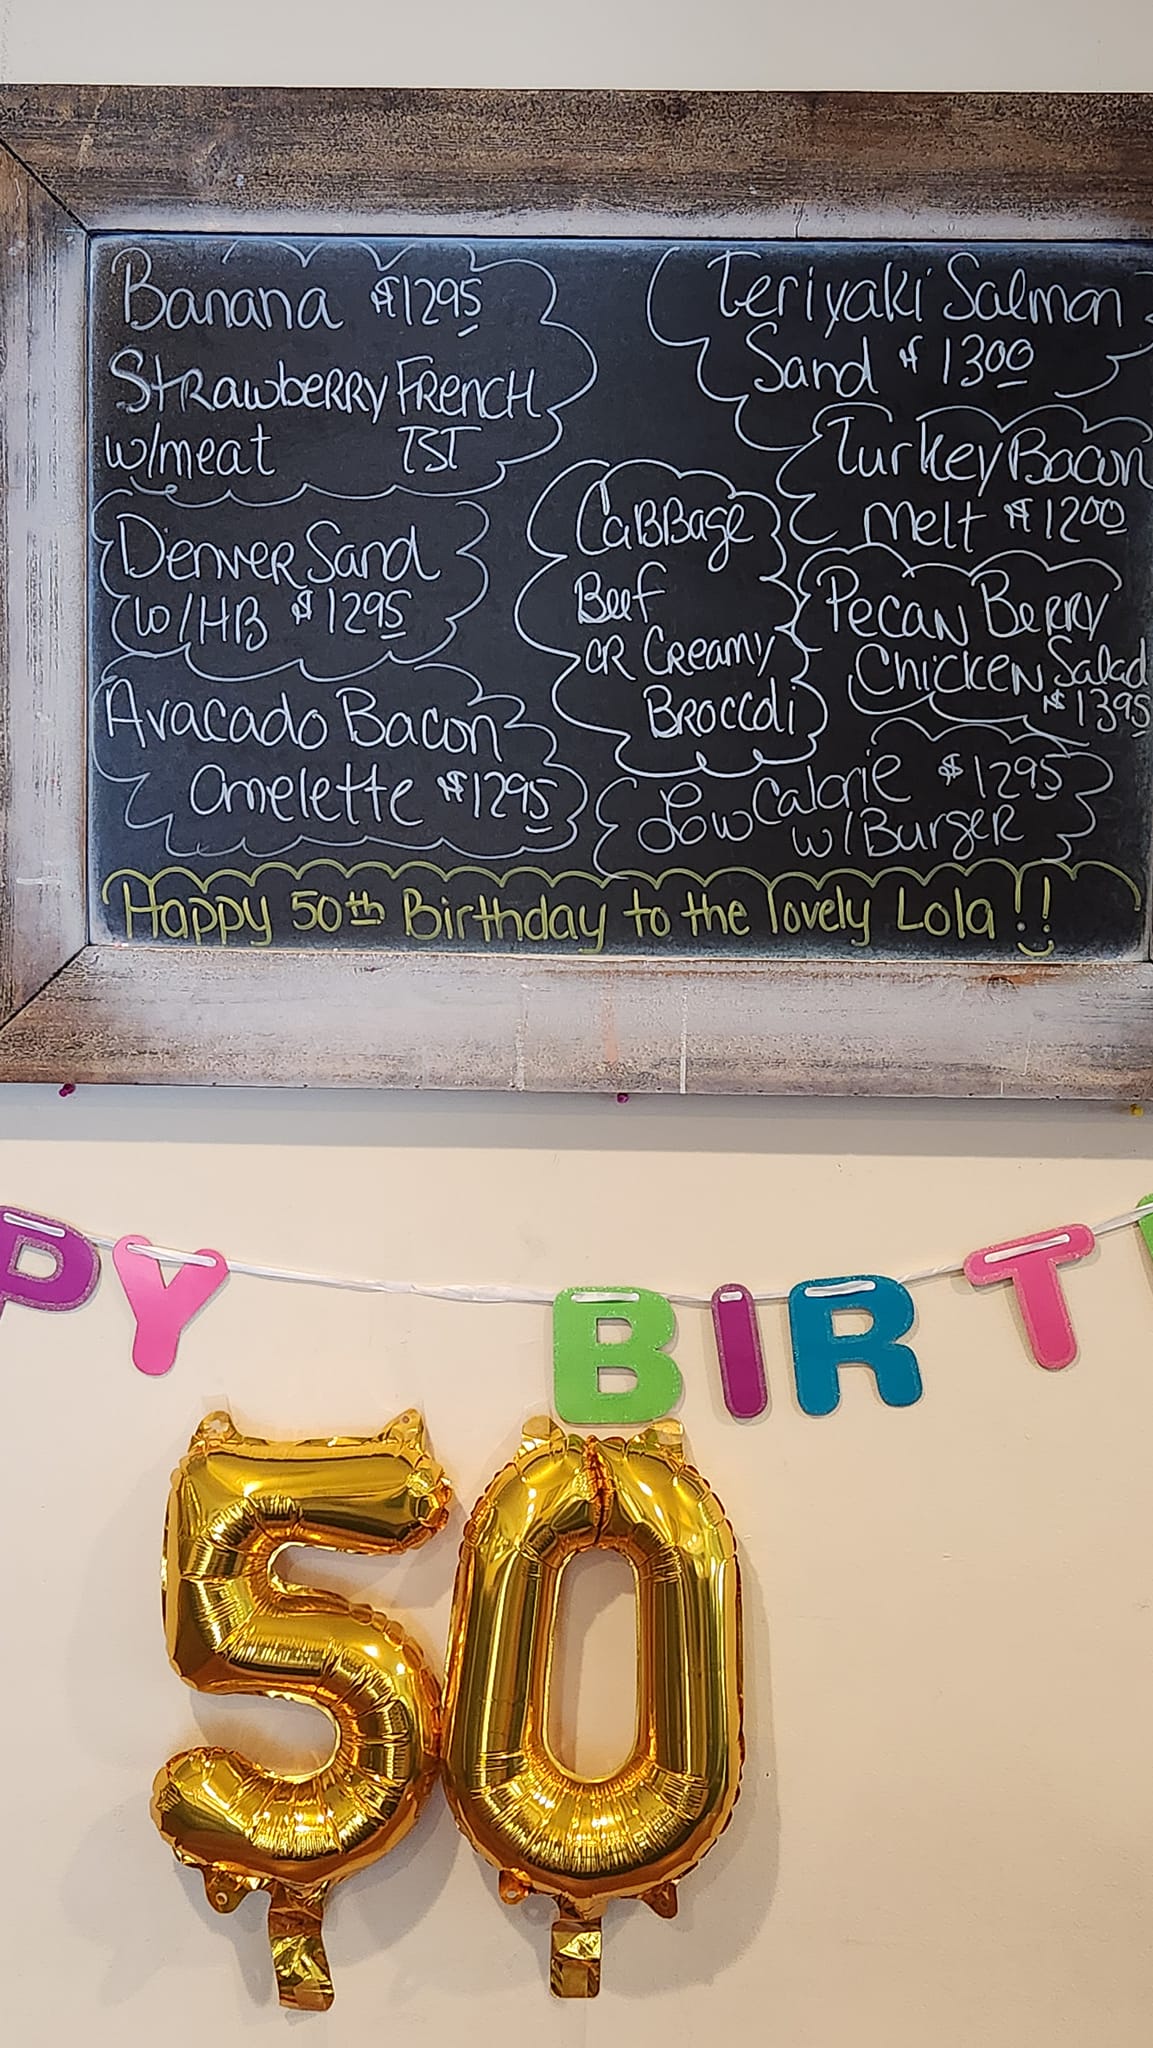 Banana $12 95
Strawberry French
w/meat TST
Denver Sand
w/HB $12 95
Avacado Bacon
omelette $12 95
Cabbage
Beef
or Creamy
Broccoli
Teriyaki Salmon
Sand $13 00
Turkey Bacon
melt $12 00
Pecan Berry
Chicken Salad
$13 95
Low Calorie $12 95
w/Burger
Happy 50th Birthday to the lovely Lola!!
PY BIRT
50